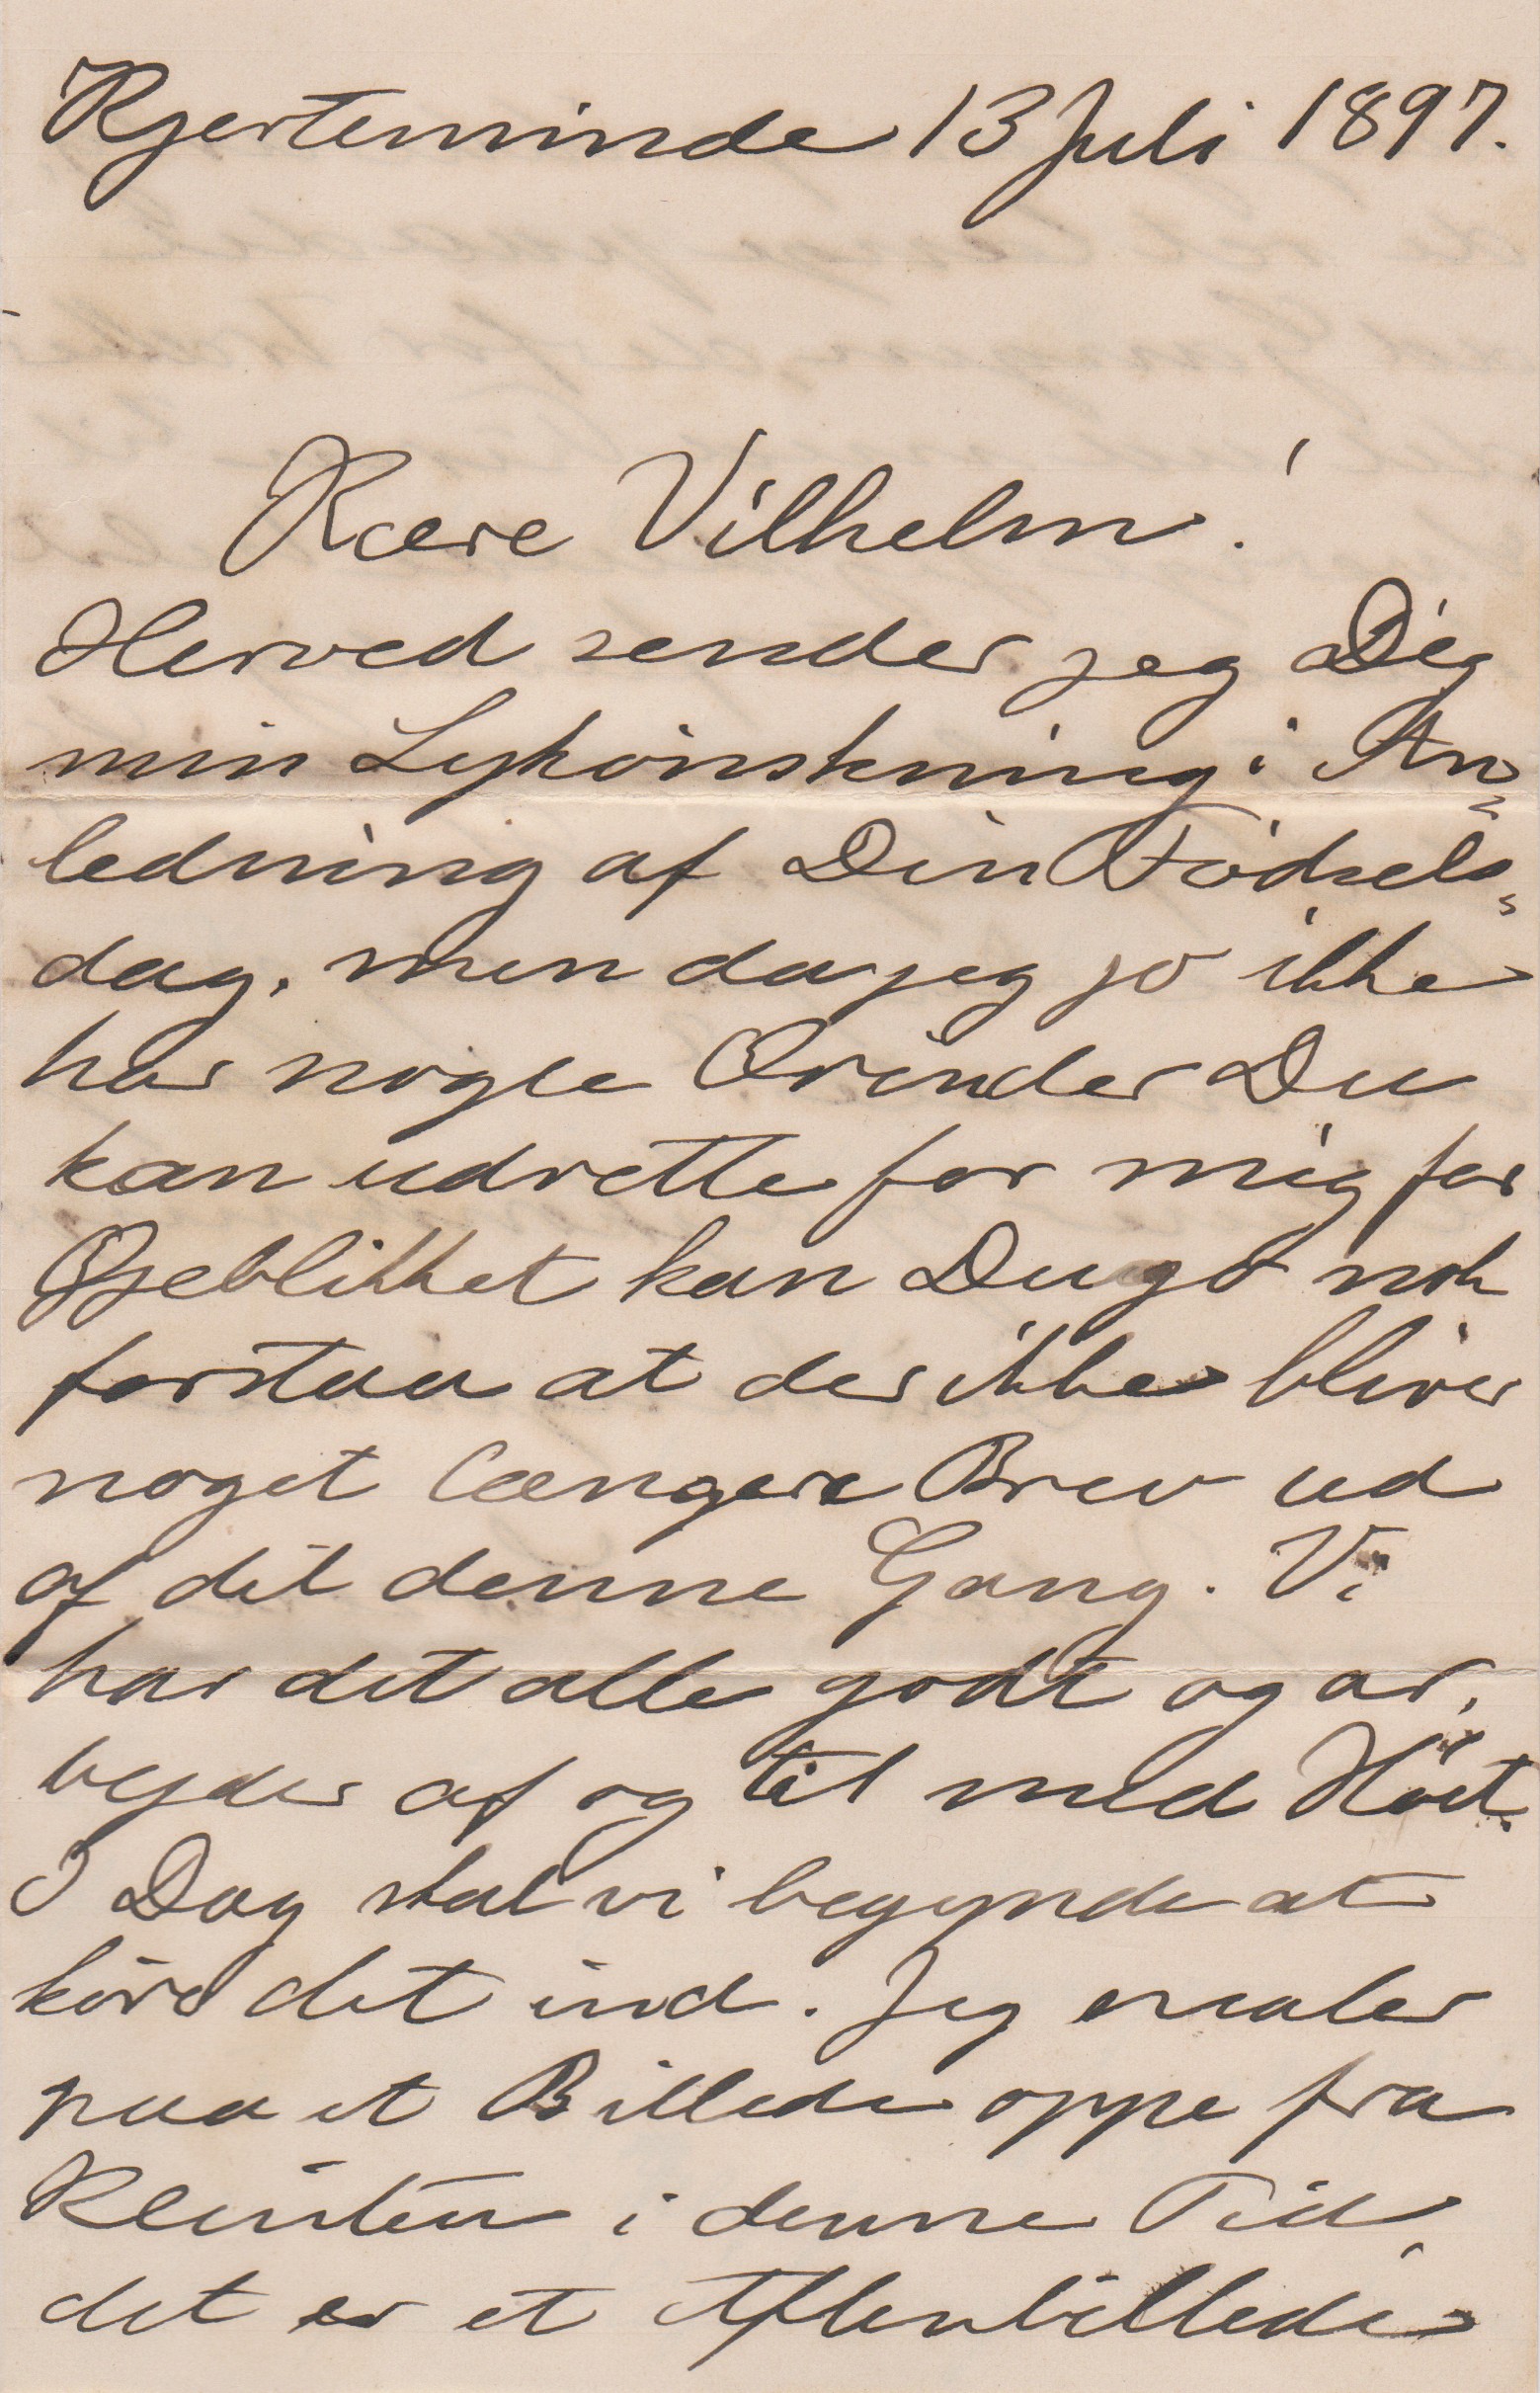 Kjerteminde 13 Juli 1897.
Kære Vilhelm!
Herved sender jeg Dig
min Lykönskning i An=
ledning af Din Födsels=
dag, men da jeg jo ikke
har nogle Ærinder Du
kan udrette for mig for
Øjeblikket kan Du go nok
forstaa at der ikke bliver
noget længere Brev ud
af det denne Gang. Vi
har det alle godt og ar,
bejder af og til med Höet.
I Dag skal vi begynde at
köre det ind. Jeg maler
paa et Billede oppe fra
Klinten i denne Tid,
det er et Aftenbillede